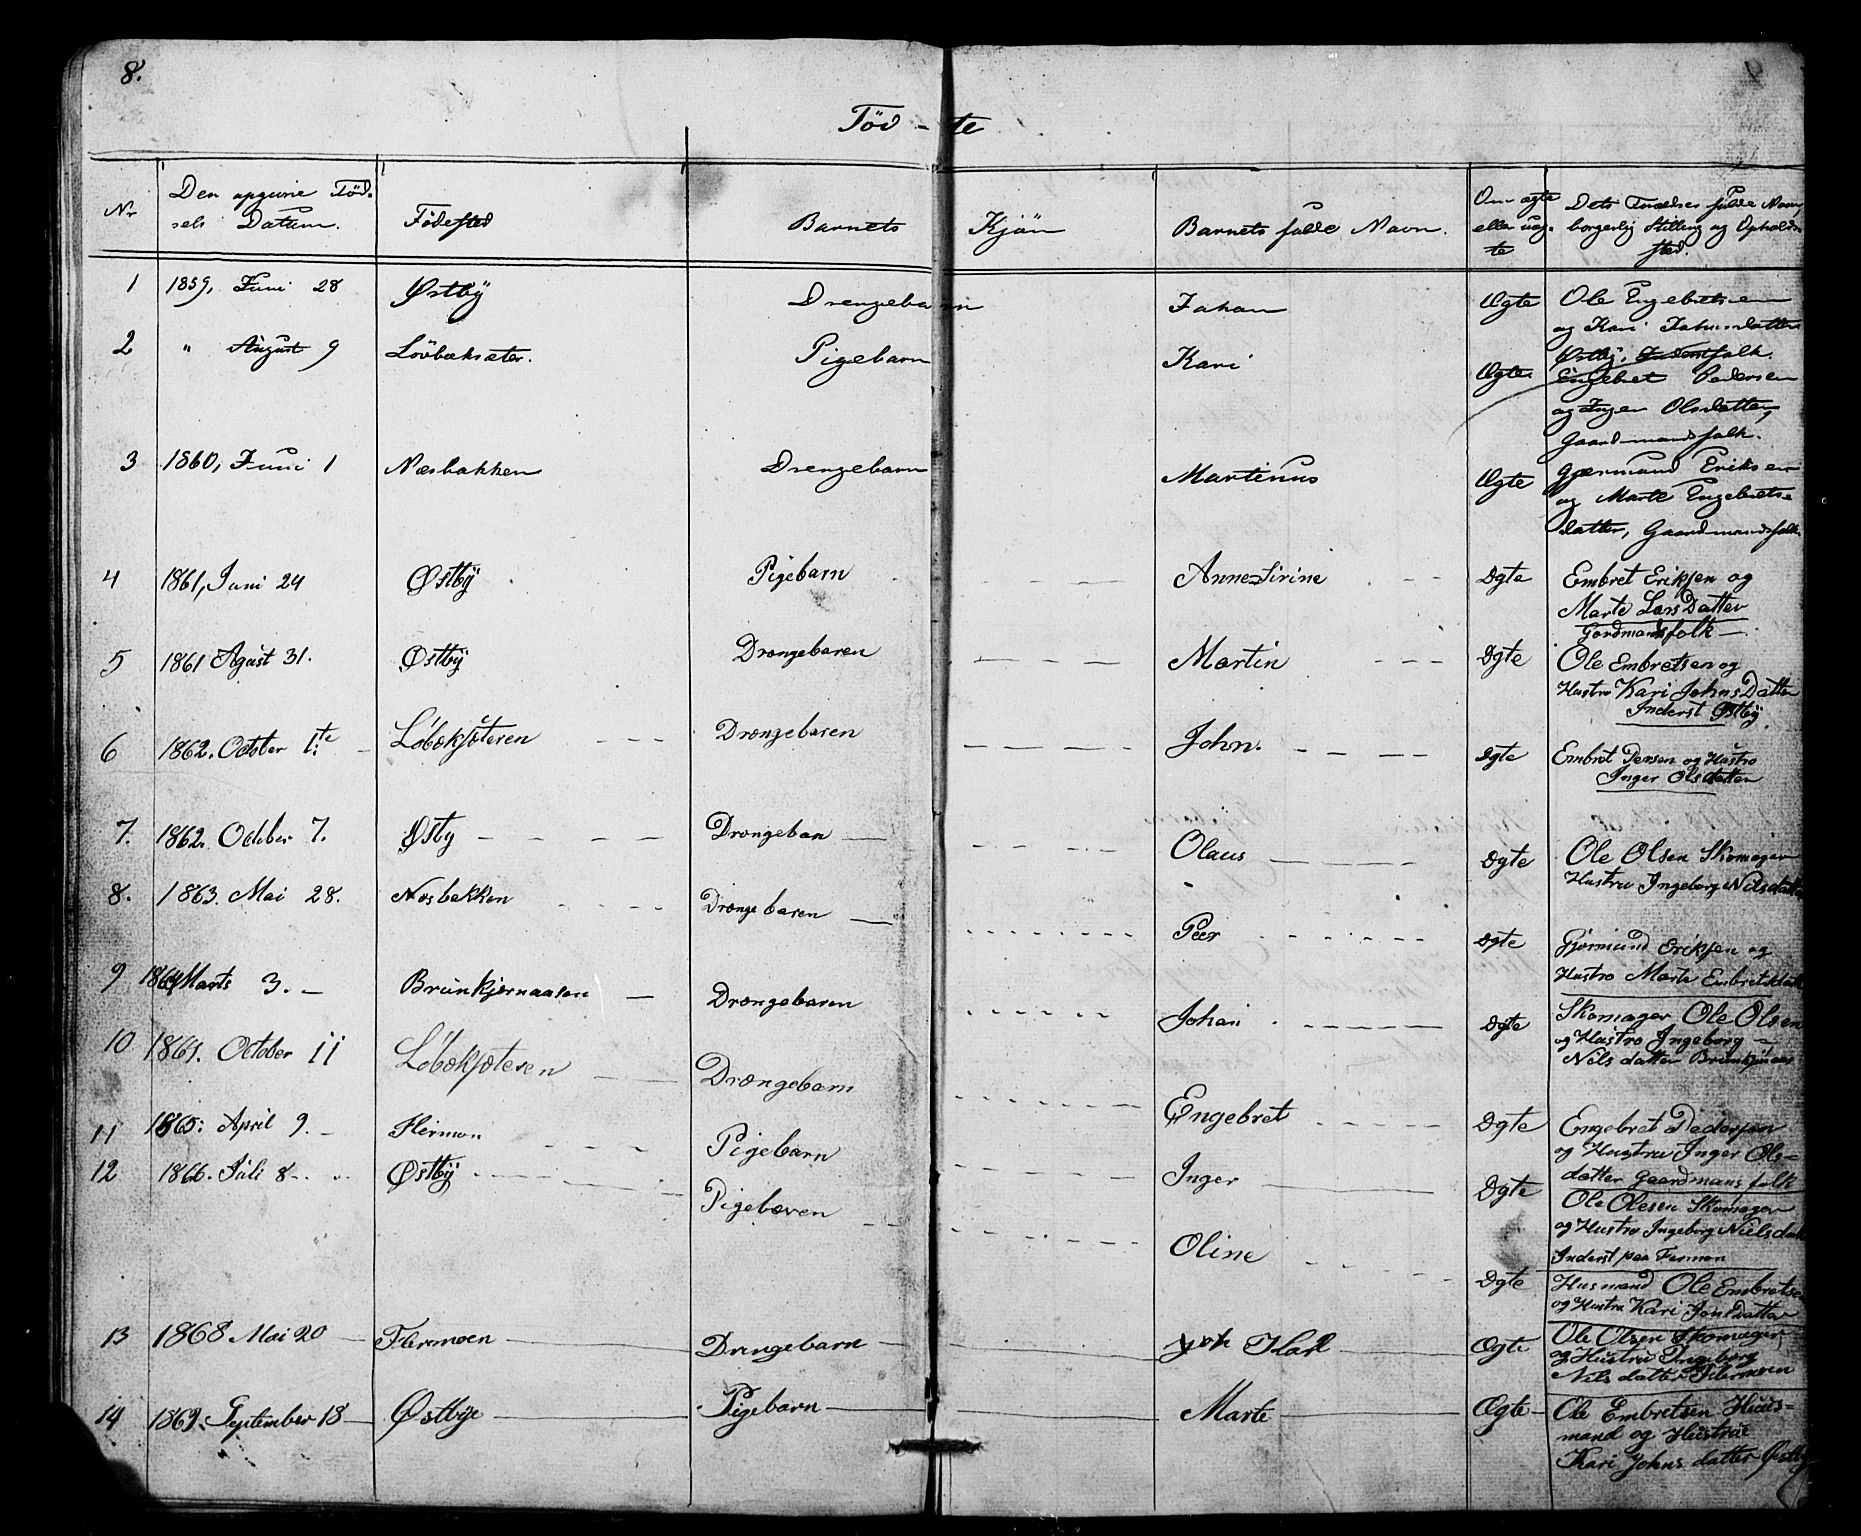 8.
9
Föd - te
Nr
Den opgivne Föd-
sels Datum.
Födested
Barnets Kjön
Barnets fulde Navn.
Om ægte
eller uæg-
te
Dets Forældres fulde Navn,
borgerlig Stilling og Opholds-
sted.
1 1859, Juni 28 Østby Drengebarn Johan Ægte Ole Engebretsen
og Kari Johnsdatter
Østby, Inderstfolk.
2 " August 9 Lövbæksæter. Pigebarn Kari Ægte Engebret Pedersen
og Inger Olsdatter,
Gaardmandsfolk.
3 1860, Juni 1 Næsbakken Drengebarn Martinus Ægte Gjærmund Eriksen
og Marte Engebrets-
datter, Gaardmandsfolk.
4 1861, Juni 24 Østby Pigebarn Anne Sirine Ægte Embret Eriksen og
Marte LarsDatter
Gordmandsfolk
5 1861 Agust 31. Østby Drængebaren Martin Ægte Ole Embretsen og
Hustro Kari JohnsDatter
Inderst Østby
6 1862. October 1te Løbæksæteren Drængebaren John. Ægte Embret Persen og Hustro
Inger Olsdatter
7. 1862. October 7. Østy Drængeban Olaus Ægte Ole Olsen Skomager
Hustru Ingeborg Nilsdatter
8. 1863. Mai 28. Næsbakken Drænge baren Peer Ægte Gjørmund Eriksen og
Hustro Marte Embretsdat
9 1864 Marts 3. Brunkjernaasen Drængebaren Johan Ægte Skomager Ole Olsen
og Hustro Ingeborg
Nils datter
10 1864. October 11 Løbæksæteren Drængebarn Engebret Ægte Engebret Pedersen
og Hustru Inger Ols-
datter Gaardmans folk
11 1865: April 9. Pigebarn Inger Ægte Ole Olesen Skomager
og Hustro Ingeborg Nielsdat
Inderst paa
12 1866. Juli 8 Østby Pigebaren Oline Ægte Husmand Ole Embretsen
og Hustru Kari JonDatter
13 1868 Mai 20 Flermoen Drengebarn Ægte Ole Olsen Skomager
og Hustru Ingeborg
Nils datter Flermoen
14 1869. September 18 Østbye Pigebarn Marte Ægte Ole Embretsen Huus-
mand og Hustrue
Kari Johns datter Østby